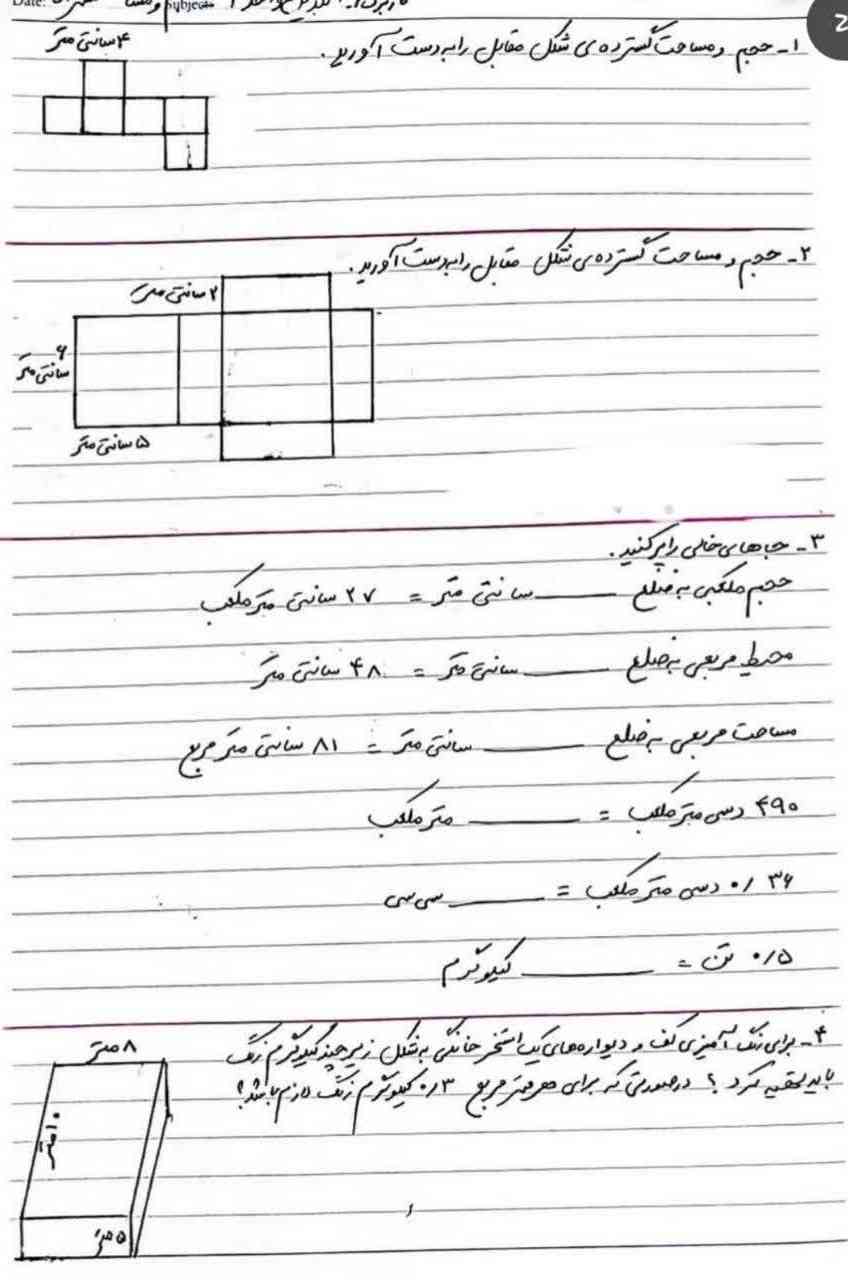 Date:
Subject:
2
۱ـ حجم و مساحت گسترده‌ی شکل مقابل را به دست آورید.
۴ سانتی متر
۲ـ حجم و مساحت گسترده‌ی شکل مقابل را به دست آورید.
۲ سانتی متر
۶
سانتی متر
۵ سانتی متر
۳ـ جاهای خالی را پر کنید.
حجم مکعبی به ضلع ______ سانتی متر = ۲۷ سانتی متر مکعب
محیط مربعی به ضلع ______ سانتی متر = ۴۸ سانتی متر
مساحت مربعی به ضلع ______ سانتی متر = ۸۱ سانتی متر مربع
۴۹۰ دسی متر مکعب = ______ متر مکعب
۰/۳۶ دسی متر مکعب = ______ سی سی
۰/۵ تن = ______ کیلوگرم
۴ـ برای رنگ آمیزی کف و دیواره‌های یک استخر خانگی به شکل زیر چند کیلوگرم رنگ
باید تهیه کرد؟ درصورتی که برای هر متر مربع ۰/۳ کیلوگرم رنگ لازم باشد؟
۸ متر
۱۰ متر
۵ متر